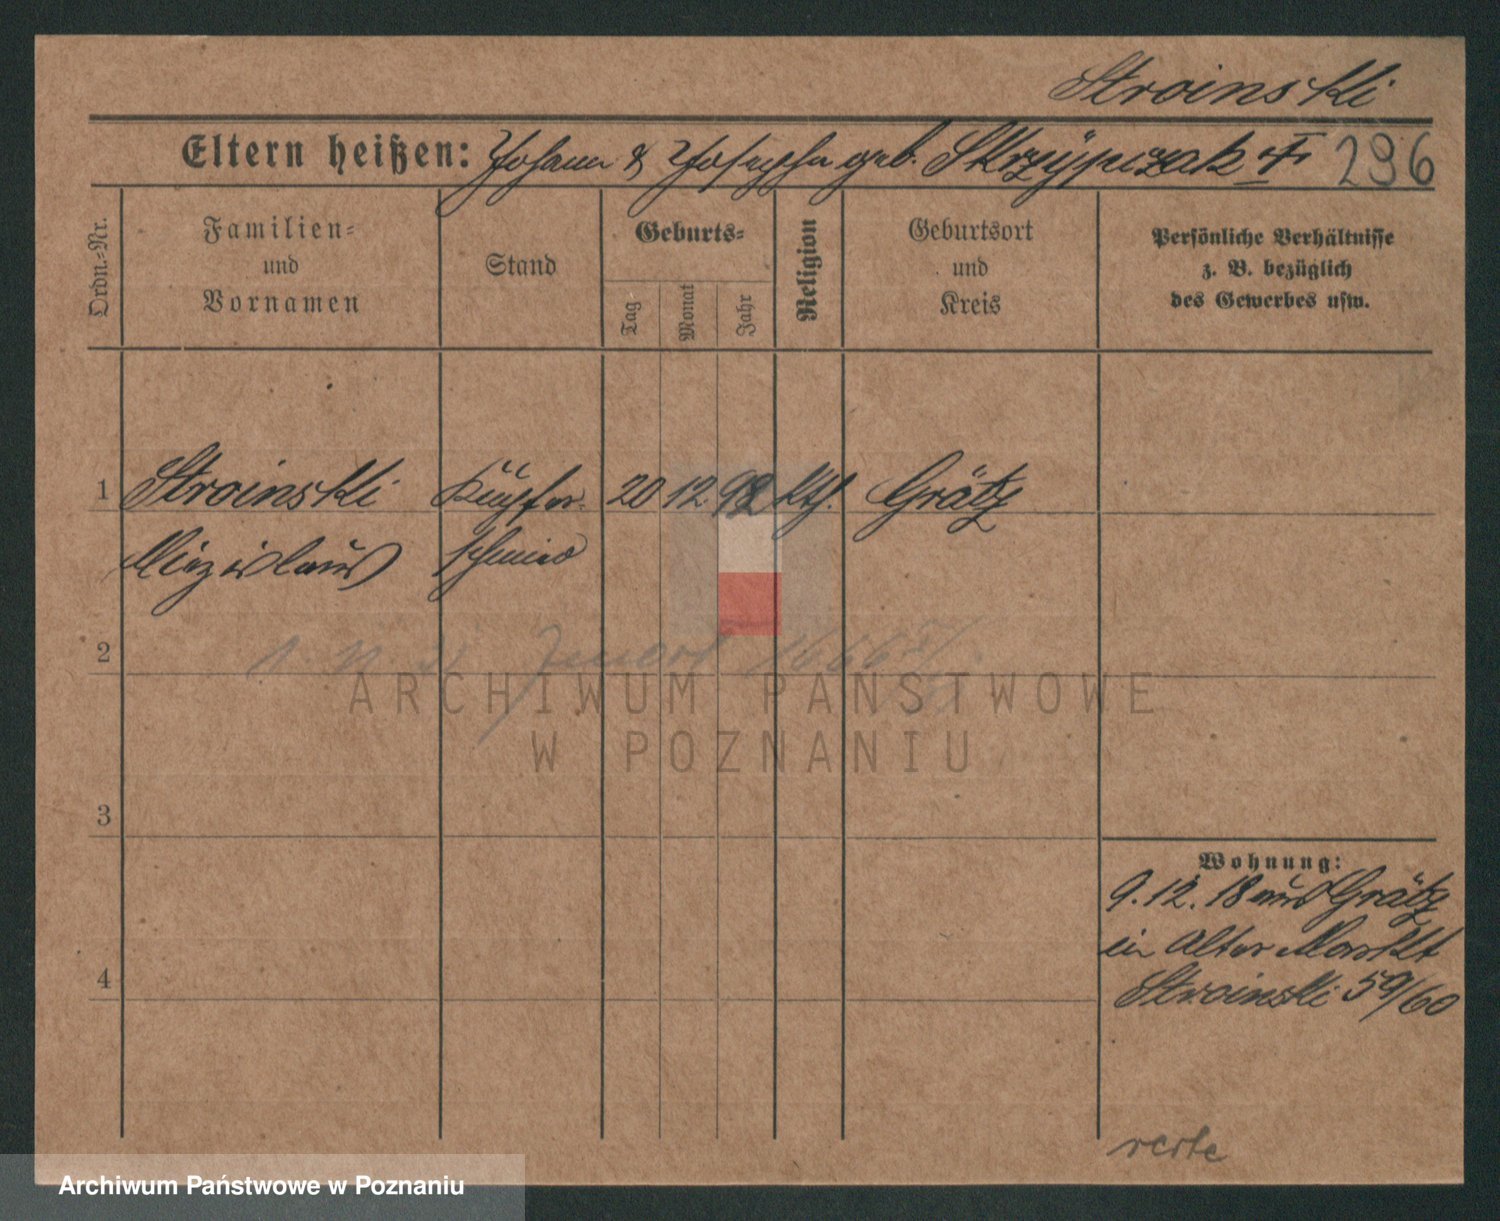 Stroinski
Eltern heißen: Johann & Josepha geb. Skrzÿpczak † 296
Ordn.-Nr.
Familien-
und
Vornamen
Stand
Geburts-
Tag
Monat
Jahr
Religion
Geburtsort
und
Kreis
Persönliche Verhältnisse
z. B. bezüglich
des Gewerbes usw.
1 Stroinski Kupfer- 20 12 92 kth. Grätz
Miezislaus schmied
2
ARCHIWUM PAŃSTWOWE
W POZNANIU
3
4
Wohnung:
9.12.18 aus Grätz
in Alter Markt
Stroinski 59/60
verte
Archiwum Państwowe w Poznaniu